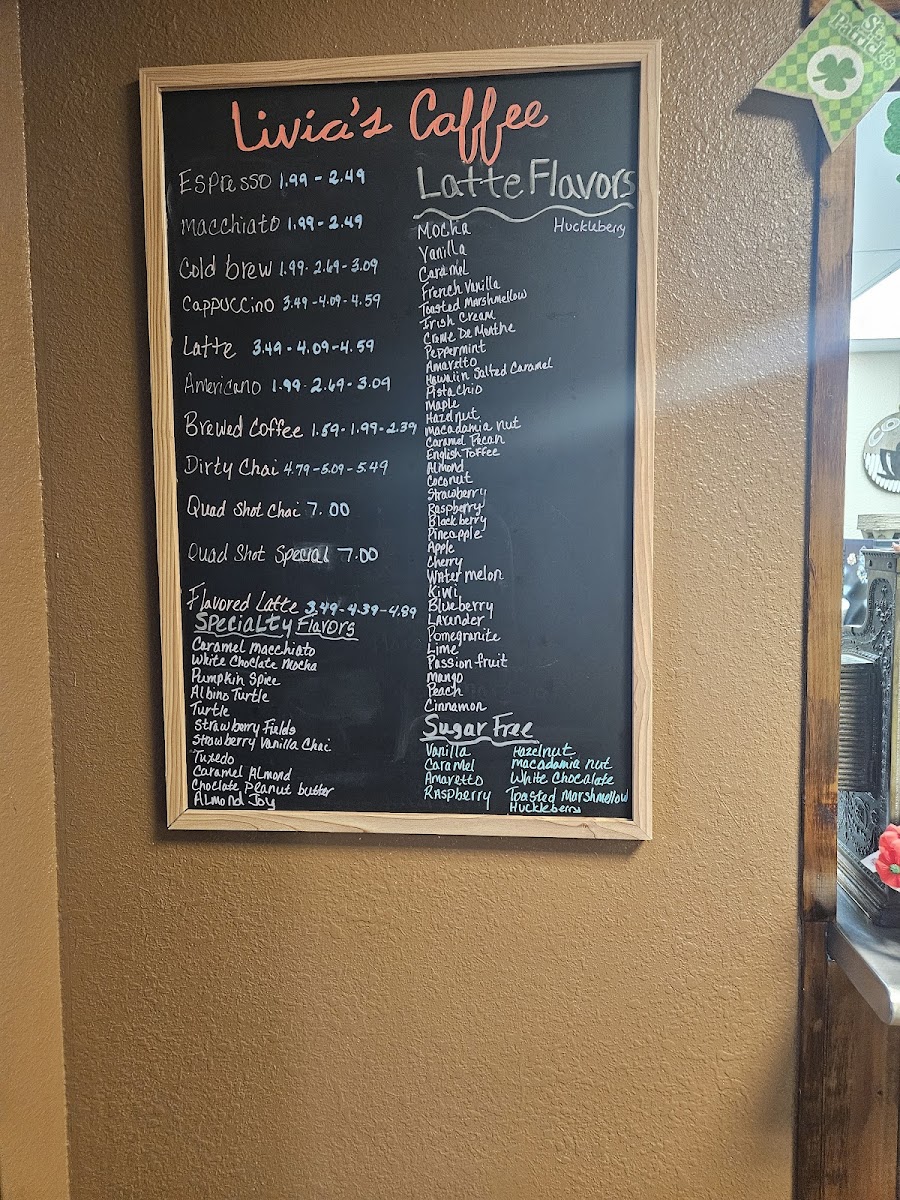 Livia's Caffee
Espresso 1.99 - 2.49
macchiato 1.99 - 2.49
Cold brew 1.99 - 2.69 - 3.09
Cappuccino 3.49 - 4.09 - 4.59
Latte 3.49 - 4.09 - 4.59
Americano 1.99 - 2.69 - 3.09
Brewed Coffee 1.59 - 1.99 - 2.39
Dirty Chai 4.79 - 5.09 - 5.49
Quad Shot Chai 7.00
Quad Shot Special 7.00
Flavored Latte 3.49 - 4.39 - 4.89
Specialty Flavors
Caramel macchiato
White Choclate Mocha
Pumpkin Spice
Albino Turtle
Turtle
Strawberry Fields
Strawberry Vanilla Chai
Tuxedo
Caramel Almond
Choclate peanut butter
Almond Joy
Latte Flavors
Mocha
Huckleberry
Vanilla
Caramel
French Vanilla
Toasted Marshmellow
Irish Cream
Creme De Menthe
Peppermint
Amaretto
Hawaiin Salted Caramel
Pistachio
Maple
Hazelnut
macadamia nut
Caramel Pecan
English Toffee
Almond
Coconut
Strawberry
Raspberry
Blackberry
Pineapple
Apple
Cherry
Water melon
Kiwi
Blueberry
Lavender
Pomegranite
Lime
Passion fruit
mango
Peach
Cinnamon
Sugar Free
Vanilla Hazelnut
Caramel macadamia nut
Amaretto White Chocalate
Raspberry Toasted Marshmellow
Huckleberry
St.
Patrick's